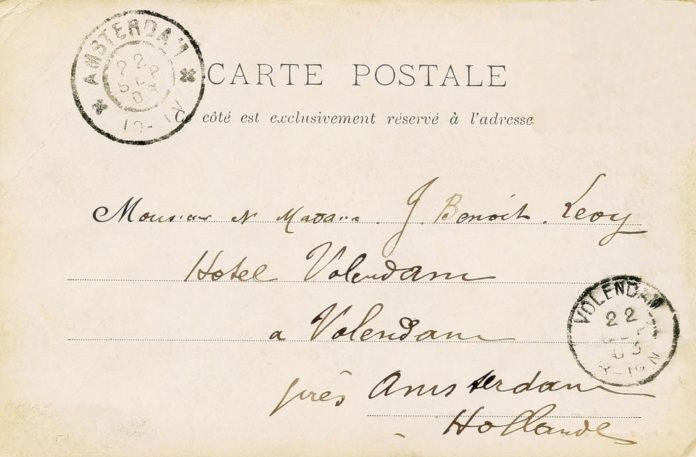 AMSTERDAM
CARTE POSTALE
Ce côté est exclusivement réservé à l'adresse
Monsieur et Madame J. Benoit-Levy
Hotel Volendam
a Volendam
près Amsterdam
Hollande
VOLENDAM
22